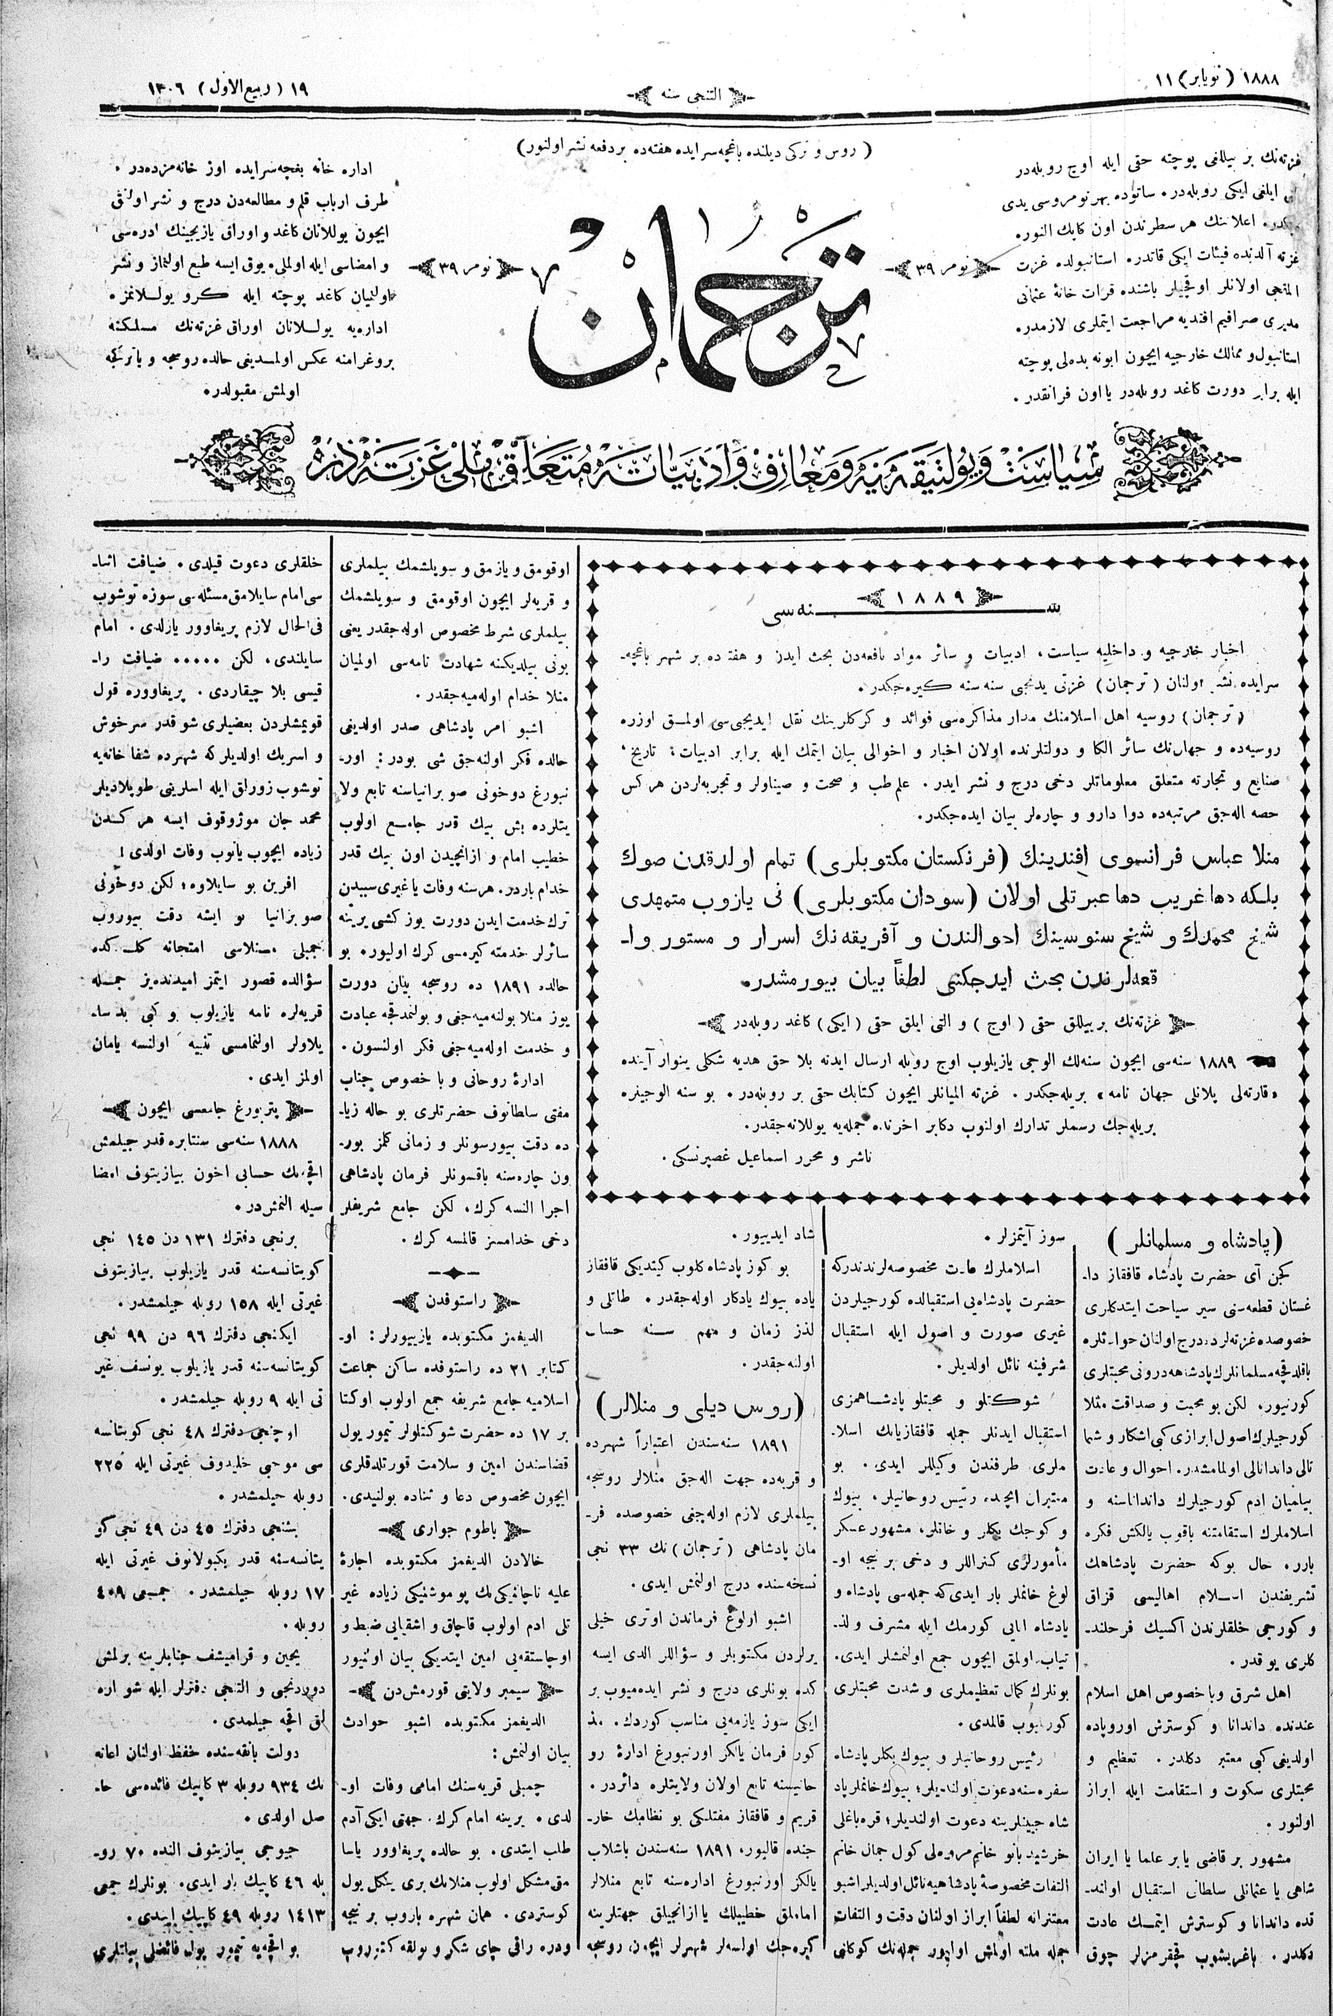 ١٨٨٨ (نویابر) ١١
التنجی سنه
١٩ (ربیع الاول) ١٣٠٦
(روس و ترکی دیلنده باغچه‌سرایده هفته‌ده بر دفعه نشر اولنور)
غزته‌نك بر ییللغی پوچته حقی ایله اوچ روبله‌در
ایلغی ایکی روبله‌در. ساتوده بهر نومروسی یدی
اعلانك هر سطرندن اون کاپك النور.
غزته آلدنده فیئات ایکی قاتدر. استانبولده غزت
المقجی اولانلر اوقچیلر باشنده قرات خانهٔ عثمانی
مدیری صرافیم افندیه مراجعت ایتملری لازمدر.
استانبول و ممالك خارجیه ایچون ابونه بدلی پوچته
ایله برابر دورت کاغد روبله‌در یا اون فرانقدر.
نومر ٣٩
ترجمان
نومر ٣٩
اداره خانه بغچه‌سرایده اوز خانه مزده‌در.
طرف ارباب قلم و مطالعه‌دن درج و نشر اولنق
ایچون یوللانان کاغد و اوراق یازیجینك ادره‌سی
و امضاسی ایله اولملی. یوق ایسه طبع اولنماز و نشر
اولنیان کاغد پوچته ایله کرو یوللانمز.
اداره‌یه یوللانان اوراق غزته‌نك مسلکنه
پروغرامنه عکس اولمدیغی حالده روسجه و یا ترکچه
اولمش مقبولدر.
سیاست و پولتیقه‌یه و معارف و ادبیاته متعلق ملی غزته‌در
١٨٨٩ سنه‌سی
اخبار خارجیه و داخلیه سیاست، ادبیات و سائر مواد نافعه‌دن بحث ایدن و هفته‌ده بر شهر باغچه‌ـ
سرایده نشر اولنان (ترجمان) غزتی یدنجی سنه‌سنه کیره‌جکدر.
(ترجمان) روسیه اهل اسلامنك مدار مذاکره‌سی فوائد و کرکلرینك نقل ایدیجی‌سی اولمق اوزره
روسیه‌ده و جهان‌نك سائر الکا و دولتلرنده اولان اخبار و احوالی بیان ایتمك ایله برابر ادبیات، تاریخ،
صنایع و تجارته متعلق معلوماتلر دخی درج و نشر ایدر. علم طب و صحت و صیناولر و تجربه‌لردن هر کس
حصه اله‌جق مرتبه‌ده دوا دارو و چاره‌لر بیان ایده‌جکدر.
منلا عباس فرانسوی افندینك (فرنکستان مکتوبلری) تمام اولدقدن صوك
بلکه دها غریب دها عبرتلی اولان (سودان مکتوبلری) نی یازوب متمهدی
شیخ محمدك و شیخ سنوسینك احوالندن و آفریقه‌نك اسرار و مستور واـ
قعه‌لرندن بحث ایدجکنی لطفاً بیان بیورمشدر.
غزته‌نك بر ییللق حقی (اوچ) و التی ایلق حقی (ایکی) کاغد روبله‌در
١٨٨٩ سنه‌سی ایچون سنه‌لك الوجی یازیلوب اوچ روبله ارسال ایدنه بلا حق هدیه شکلی ینوار آینده
«قارته‌لی پلانلی جهان نامه» بریله‌جکدر. غزته المیانلر ایچون کتابك حقی بر روبله‌در. بو سنه الوجیلره
بریله‌جك رسملر تدارك اولنوب دکابر اخرنده جمله‌یه یوللانه‌جقدر.
ناشر و محرر اسماعیل غصپرنسکی.
(پادشاه و مسلمانلر)
کچن آی حضرت پادشاه قافقاز داـ
غستان قطعه‌سنی سیر سیاحت ایتدکلری
خصوصده غزته‌لرده درج اولنان حوادثلره
باقلدقچه مسلمانلرك پادشاهه درونی محبتلری
کورنیور. لکن بو محبت و صداقت مثلا
کورجیلرك اصول ابرازی کبی اشکار و شما
تالی داندانالی اولمامشدر. احوال و عادت
بیلمیان ادم کورجیلرك دانداناسنه و
اسلاملرك استقامتنه باقوب یالکش فکره
بارر. حال بوکه حضرت پادشاهك
تشریفندن اسلام اهالیسی قزاق
و کورجی خلقلرندن اکسیك فرحلندـ
کلری یوقدر.
اهل شرق و با خصوص اهل اسلام
عندنده داندانا و کوسترش اوروپاده
اولدیغی کبی معتبر دکلدر. تعظیم و
محبتلری سکوت و استقامت ایله ابراز
اولنور.
مشهور بر قاضی یا بر علما یا ایران
شاهی یا عثمانلی سلطانی استقبال اولندـ
قده داندانا و کوسترش ایتمك عادت
دکلدر. باغریشوب چقرمزلر چوق
سوز آیتمزلر.
اسلاملرك عادت مخصوصه‌لرندندرکه
حضرت پادشاه‌یی استقبالده کورجیلردن
غیری صورت و اصول ایله استقبال
شرفینه نائل اولدیلر.
شوکتلو و محبتلو پادشاهمزی
استقبال ایدنلر جمله قافقازیانك اسلاـ
ملری طرفندن وکیللر ایدی. بو
معتبران ایچنده رئیس روحانیلر، بیوك
و کوچك بکلر و خانلر، مشهور عسکر
مأمورلری کنراللر و دخی بر نیجه اوـ
لوغ خانملر بار ایدی که جمله‌سی پادشاه و
پادشاه انایی کورمك ایله مشرف و لذـ
تیاب اولمق ایچون جمع اولنمشلر ایدی.
بونلرك کمال تعظیملری و شدت محبتلری
کورنیوب قالمدی.
رئیس روحانیلر و بیوك بکلر پادشاه
سفره‌سنه دعوت اولندیلر؛ بیوك خانملر پاد
شاه جبینلرینه دعوت اولندیلر؛ قره‌باغلی
خرشید بانو خانم مرومه‌لی کول جمال خانم
التفات مخصوصهٔ پادشاهیه نائل اولدیلر اشبو
معتبرانه لطفاً ابراز اولنان دقت و التفات
جمله ملته اولمش اولیور جمله‌نك کوکانی
شاد ایدییور.
بو کوز پادشاه کلوب کیتدیکی قافقاز
یاده بیوك یادکار اوله‌جقدر. طاتلی و
لذذ زمان و مهم سنه حساب
اولنه‌جقدر.
(روس دیلی و منلالر)
١٨٩١ سنه‌سندن اعتباراً شهرده
و قریه‌ده جهت اله‌جق منلالر روسجه
بیلملری لازم اوله‌جغی خصوصده فرـ
مان پادشاهی (ترجمان) نك ٣٣ نجی
نسخه‌سنده درج اولنمش ایدی.
اشبو اولوغ فرماندن اوتری خیلی
یرلردن مکتوبلر و سؤاللر الدی ایسه
کده بونلری درج و نشر ایده‌میوب بر
ایکی سوز یازمه‌یی مناسب کوردك. مذ
کور فرمان یالکز اورنبورغ ادارهٔ رو
حانیسنه تابع اولان ولایتلره دائردر.
قریم و قافقاز مفتلکی بو نظامك خارـ
جنده قالیور. ١٨٩١ سنه‌سندن باشلاب
یالکز اورنبورغ اداره‌سنه تابع منلالر
اماملق خطیبلك یا ازانجیلق جهتلرینه
کیره‌جك اولسه‌لر شهرلر ایچون روسجه
اوقومق و یازمق و سویلشمك بیلملری
و قریه‌لر ایچون اوقومق و سویلشمك
بیلملری شرط مخصوص اوله‌جقدر یعنی
بونی بیلدیکنه شهادت نامه‌سی اولمیان
منلا خدام اوله‌میه‌جقدر.
اشبو امر پادشاهی صدر اولدیغی
حالده فکر اولنه‌جق شی بودر: اورـ
نبورغ دوخونی صوبرانیاسنه تابع ولا
یتلرده بش بیك قدر جامع اولوب
خطیب امام و ازانجیدن اون بیك قدر
خدام باردر. هر سنه وفات یا غیری سببدن
ترك خدمت ایدن دورت یوز کشی یرینه
سائرلر خدمته کیرمسی کرك اولیور. بو
حالده ١٨٩١ ده روسجه بیلن دورت
یوز منلا بولنه‌میه‌جغی و بولنمدقچه عبادت
و خدمت اوله‌میه‌جغی فکر اولنسون.
ادارهٔ روحانی و با خصوص جناب
مفتی سلطانوف حضرتلری بو حاله زیاـ
ده دقت بیورسونلر و زمانی کلمز بورـ
ون چاره‌سنه باقسونلر فرمان پادشاهی
اجرا النسه کرك، لکن جامع شریفلر
دخی خدامسز قالمسه کرك.
راستوفدن
الدیغمز مکتوبده یازییورلر: اوـ
کتابر ٣١ ده راستوفده ساکن جماعت
اسلامیه جامع شریفه جمع اولوب اوکتا
بر ١٧ ده حضرت شوکتلولر تیمور یول
قضاسندن امین و سلامت قورتلدقلری
ایچون مخصوص دعا و ثناده بولنیدی.
باطوم جواری
خالادن الدیغمز مکتوبده اجارهٔ
علیه ناچالنیکی‌نك پوموشنیکی زیاده غیر
تلی ادم اولوب قاچاق و اشقیایی ضبط و
اوچاستقه‌یی امین ایتدیکی بیان اولنیور
سیمبر ولایتی قورمش‌دن
الدیغمز مکتوبده اشبو حوادث
بیان اولنمش:
چمبلی قریه‌سنك امامی وفات اوـ
لدی. یرینه امام کرك. جهتی ایکی آدم
طلب ایتدی. بو حالده پریغاوور یاسا
مق مشکل اولوب منلانك بری ینکل یول
کوستردی. همان شهره باروب بر نیجه
ودره راقی چای شکر و بولقه کتوروب
خلقلری دعوت قیلدی. ضیافت اثناـ
سی امام سایلامق مسئله‌سی سوزه توشوب
فی الحال لازم پریغاوور یازلدی. امام
سایلندی، لکن ..... ضیافت راـ
قیسی بلا چیقاردی. پریغاووره قول
قویمشلردن بعضیلری شو قدر سرخوش
و اسریك اولدیلرکه شهرده شفا خانه‌یه
توشوب زوراق ایله اسلرینی طوپلادیلر
محمد جان موژوقوف ایسه هر کسدن
زیاده ایچوب یانوب وفات اولدی!
افرین بو سایلاوه، لکن دوخونی
صوبرانیا بو ایشه دقت بیوروب
چمبلی منلاسی امتحانه کلدکده
سؤالده قصور ایتمز امیدنده‌یز جمله
قریه‌لره نامه یازیلوب بو کبی بد ساـ
یلاولر اولنمامسی تنبیه اولنسه یامان
اولمز ایدی.
پتربورغ جامعسی ایچون
١٨٨٨ سنه‌سی سنتابره قدر جیلمش
اقچه‌نك حسابی اخون بیازیتوف امضا
سیله النمشدر.
برنجی دفترك ١٣١ دن ١٤٥ نجی
کویتانسه‌سنه قدر یازیلوب بیازیتوف
غیرتی ایله ١٥٨ روبله جیلمشدر.
ایکنجی دفترك ٩٦ دن ٩٩ نجی
کویتانسه‌سنه قدر یازیلوب یوسف غیر
تی ایله ٩ روبله جیلمشدر.
اوچنجی دفترك ٤٨ نجی کویتانسه
سی موجبی خلیدوف غیرتی ایله ٢٢٥
روبله جیلمشدر.
بشنجی دفترك ٤٥ دن ٤٩ نجی کو
یتانسه‌سنه قدر بکبولاتوف غیرتی ایله
١٧ روبله جیلمشدر. جمعی ٤٠٩
روبله.
یحین و قرامیشف جنابلرینه برلمش
دوردنجی و التنجی دفترلر ایله شو اره
لق اقچه جیلمدی.
دولت بانقه‌سنده حفظ اولنان اعانه
نك ٩٣٤ روبله ٣ کاپیك فائده‌سی حاـ
صل اولدی.
جیوجی بیازیتوف النده ٧٠ روـ
بله ٤٦ کاپیك بار ایدی. بونلرك جمعی
١٤١٣ روبله ٤٩ کاپیك ایتدی.
بو اقچه‌یه تیمور یول فائضلی بیلتلری